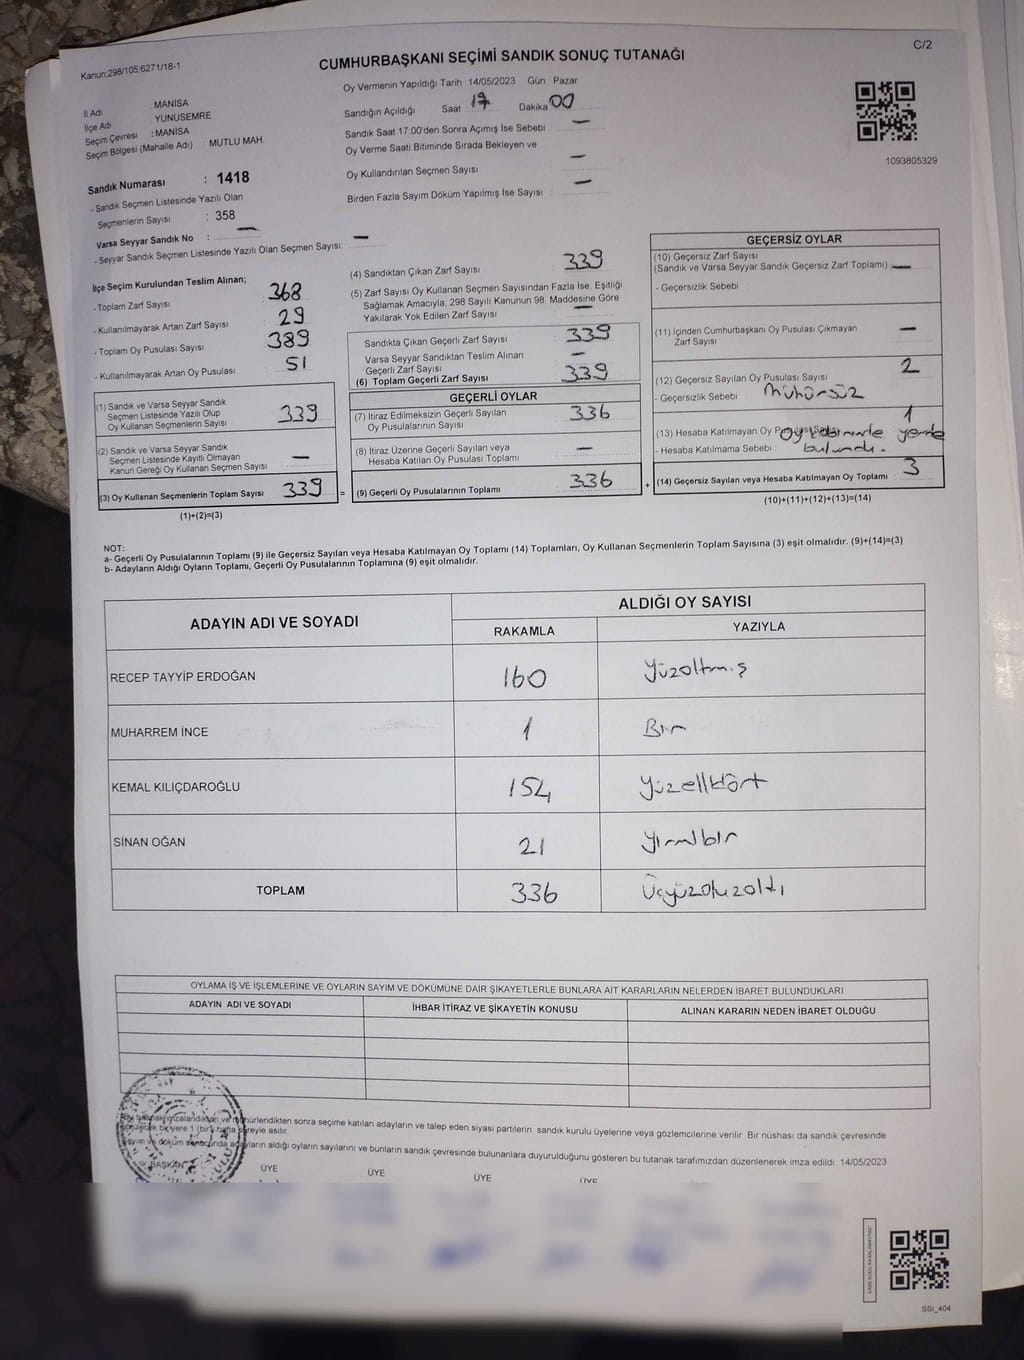 C/2
Kanun:298/105;6271/18-1
CUMHURBAŞKANI SEÇİMİ SANDIK SONUÇ TUTANAĞI
Oy Vermenin Yapıldığı Tarih :14/05/2023 Gün : Pazar
İl Adı MANİSA
İlçe Adı YUNUSEMRE
Seçim Çevresi : MANİSA
Seçim Bölgesi (Mahalle Adı) : MUTLU MAH
Sandığın Açıldığı Saat 17 Dakika 00
Sandık Saat 17:00'den Sonra Açımış İse Sebebi : —
Oy Verme Saati Bitiminde Sırada Bekleyen ve
Oy Kullandırılan Seçmen Sayısı : —
Birden Fazla Sayım Döküm Yapılmış İse Sayısı : —
1093805329
Sandık Numarası : 1418
- Sandık Seçmen Listesinde Yazılı Olan
Seçmenlerin Sayısı : 358
Varsa Seyyar Sandık No : —
- Seyyar Sandık Seçmen Listesinde Yazılı Olan Seçmen Sayısı: —
İlçe Seçim Kurulundan Teslim Alınan;
- Toplam Zarf Sayısı 368
- Kullanılmayarak Artan Zarf Sayısı 29
- Toplam Oy Pusulası Sayısı 389
- Kullanılmayarak Artan Oy Pusulası 51
(1) Sandık ve Varsa Seyyar Sandık
Seçmen Listesinde Yazılı Olup
Oy Kullanan Seçmenlerin Sayısı 339
(2) Sandık ve Varsa Seyyar Sandık
Seçmen Listesinde Kayıtlı Olmayan
Kanun Gereği Oy Kullanan Seçmen Sayısı —
(3) Oy Kullanan Seçmenlerin Toplam Sayısı 339 =
(1)+(2)=(3)
(4) Sandıktan Çıkan Zarf Sayısı 339
(5) Zarf Sayısı Oy Kullanan Seçmen Sayısından Fazla İse, Eşitliği
Sağlamak Amacıyla; 298 Sayılı Kanunun 98. Maddesine Göre
Yakılarak Yok Edilen Zarf Sayısı —
Sandıkta Çıkan Geçerli Zarf Sayısı 339
Varsa Seyyar Sandıktan Teslim Alınan
Geçerli Zarf Sayısı —
(6) Toplam Geçerli Zarf Sayısı 339
GEÇERLİ OYLAR
(7) İtiraz Edilmeksizin Geçerli Sayılan
Oy Pusulasının Sayısı 336
(8) İtiraz Üzerine Geçerli Sayılan veya
Hesaba Katılan Oy Pusulası Toplamı —
(9) Geçerli Oy Pusulalarının Toplamı 336 +
GEÇERSİZ OYLAR
(10) Geçersiz Zarf Sayısı
(Sandık ve Varsa Seyyar Sandık Geçersiz Zarf Toplamı) —
- Geçersizlik Sebebi
(11) İçinden Cumhurbaşkanı Oy Pusulası Çıkmayan
Zarf Sayısı —
(12) Geçersiz Sayılan Oy Pusulası Sayısı 2
- Geçersizlik Sebebi : Mühürsüz
(13) Hesaba Katılmayan Oy Pusulası Sayısı 1
- Hesaba Katılmama Sebebi : yerde bulundu.
(14) Geçersiz Sayılan veya Hesaba Katılmayan Oy Toplamı 3
(10)+(11)+(12)+(13)=(14)
NOT:
a- Geçerli Oy Pusulalarının Toplamı (9) ile Geçersiz Sayılan veya Hesaba Katılmayan Oy Toplamı (14) Toplamları, Oy Kullanan Seçmenlerin Toplam Sayısına (3) eşit olmalıdır. (9)+(14)=(3)
b- Adayların Aldığı Oyların Toplamı, Geçerli Oy Pusulalarının Toplamına (9) eşit olmalıdır.
ADAYIN ADI VE SOYADI ALDIĞI OY SAYISI
RAKAMLA YAZIYLA
RECEP TAYYİP ERDOĞAN 160 Yüzaltmış
MUHARREM İNCE 1 Bir
KEMAL KILIÇDAROĞLU 154 Yüzellidört
SİNAN OĞAN 21 Yirmibir
TOPLAM 336 Üçyüzotuzaltı
OYLAMA İŞ VE İŞLEMLERİNE VE OYLARIN SAYIM VE DÖKÜMÜNE DAİR ŞİKAYETLERLE BUNLARA AİT KARARLARIN NELERDEN İBARET BULUNDUKLARI
ADAYIN ADI VE SOYADI İHBAR İTİRAZ VE ŞİKAYETİN KONUSU ALINAN KARARIN NEDEN İBARET OLDUĞU
sonra seçime katılan adayların ve talep eden siyasi partilerin sandık kurulu üyelerine veya gözlemcilerine verilir. Bir nüshası da sandık çevresinde
yere 1 (bir) hafta süreyle asılır.
adayların aldığı oyların sayılarını ve bunların sandık çevresinde bulunanlara duyurulduğunu gösteren bu tutanak tarafımızdan düzenlenerek imza edildi. 14/05/2023
BAŞKAN ÜYE ÜYE ÜYE ÜYE
SSI_404